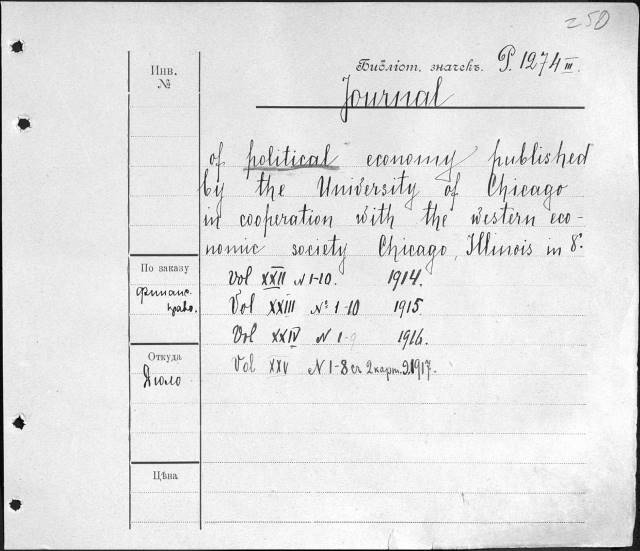 250
Библіот. значекъ. P. 1274 III.
Инв.
№
Journal
of political economy published
by the University of Chicago
in cooperation with the western eco-
nomic society Chicago, Illinois in 8°.
По заказу
финанс.
право.
Vol XXII N 1-10. 1914.
Vol XXIII N° 1-10 1915.
Vol XXIV N 1-9 1916.
Vol XXV N 1-8 съ 2 карт. 9. 1917.
Откуда
Цѣна